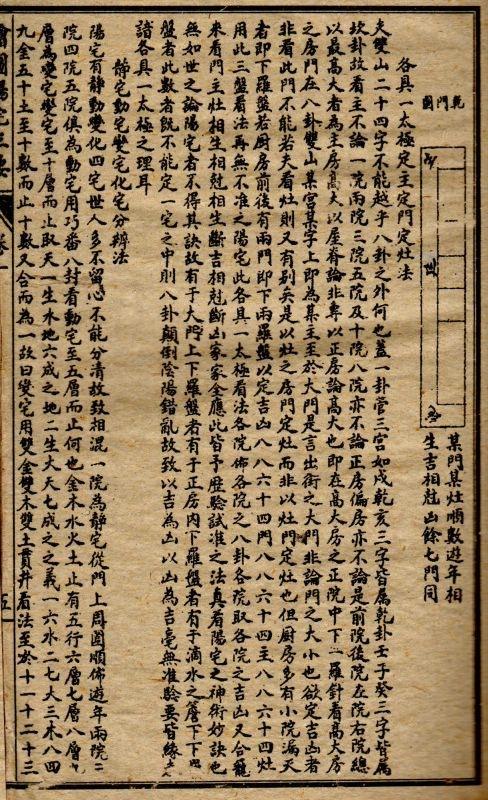 乾門圖
某門某灶順數遊年相
生吉相尅凶餘七門同
各具一太極定主定門定灶法
夫雙山二十四字不能越乎八卦之外何也蓋一卦管三宮如戌乾亥三字皆属乾卦壬子癸三字皆属
坎卦故看主不論一院兩院三院五院及十院八院亦不論正房偏房亦不論是前院後院左院右院總
以最高大者為主房高大以屋脊論非專以正房論高大也即在高大房之正院中下一羅針看高大房
之房門在八卦雙山某宮某字上即為某主至於大門是言出街之大門非論門之大小也欲定吉凶者
非看此門不能若夫看灶則又有別矣是以灶之房門定灶而非以灶門定灶也但厨房多有小院漏天
者即下羅盤若厨房前後有兩門即下兩羅盤以定吉凶八八六十四門八八六十四主八八六十四灶
用此三盤看法再無不准之陽宅此各具一太極看法各院佈各院之八卦各院取各院之吉凶又合籠
來看門主灶相生相尅相生斷吉相尅斷凶家家全應此皆予歷驗試准之法真看陽宅之神術妙訣也
無如世之論陽宅者不得其訣故有于大門上下羅盤者有于正房内下羅盤者有于滴水之簷下下
盤者此數者既不能定一宅之中則八卦顛倒陰陽錯亂故致以吉為凶以凶為吉毫無准驗要皆緣
諳各具一太極之理耳
静宅動宅變宅化宅分辨法
陽宅有静動變化四宅世人多不留心不能分清故致相混一院為静宅從門上周圍順佈遊年兩院
院四院五院俱為動宅用巧番八卦看動宅至五層而止何也金木水火土止有五行六層七層八層
層為變宅變宅至十層而止取天一生水地六成之地二生火天七成之之義一六水二七火三木八四
九金五十土至十數而止十數又合而為一故曰變宅用雙金雙木雙土貫井看法至於十一十二十三
五